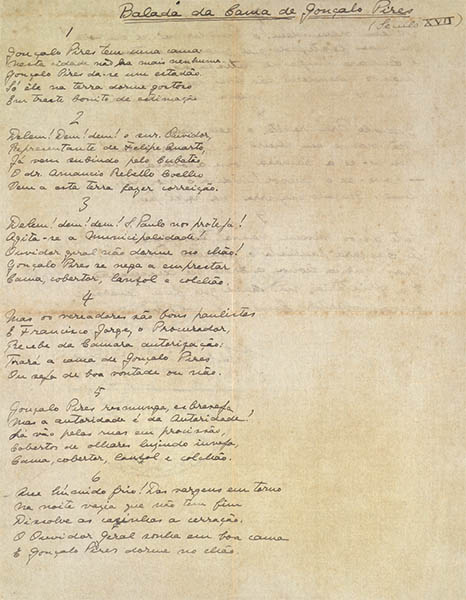 Balada da Cama de Gonçalo Pires
(Seculo XVII)
1
Gonçalo Pires tem uma cama
Nesta cidade não ha mais nenhuma.
Gonçalo Pires da-se um estadão.
Só êle na terra dorme gostoso
Em traste bonito de estimação
2
Delem! Dem! dem! o snr. Ouvidor,
Representante de Felipe Quarto,
Já vem subindo pelo Cubatão
O dr. Amancio Rebello Coelho
Vem a esta terra fazer correição.
3
Delem! dem! dem! S. Paulo nos proteja!
Agita-se a Municipalidade!
Ouvidor geral não dorme no chão!
Gonçalo Pires se nega a emprestar
Cama, cobertor, lançol e colchão.
4
Mas os vereadores são bons paulistas
E Francisco Jorge, o Procurador,
Recebe da Camara autorização:
Trará a cama de Gonçalo Pires
Ou seja de boa vontade ou não.
5
Gonçalo Pires resmunga, esbraveja,
Mas a autoridade é da Autoridade!
Lá vão pelas ruas em procissão,
Cobertos de olhares luzindo inveja,
Cama, cobertor, lançol e colchão.
6
Que frio! Das vargens em torno
Na noite vazia que não tem fim
Dissolve as casinhas a cerração.
O Ouvidor Geral sonha em boa cama
E Gonçalo Pires dorme no chão.